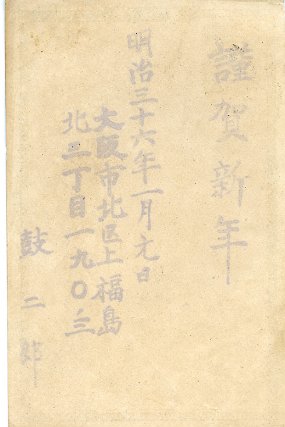 謹賀新年
明治三十六年一月元日
大阪市北区上福島
北三丁目一九〇ノ三
鼓二